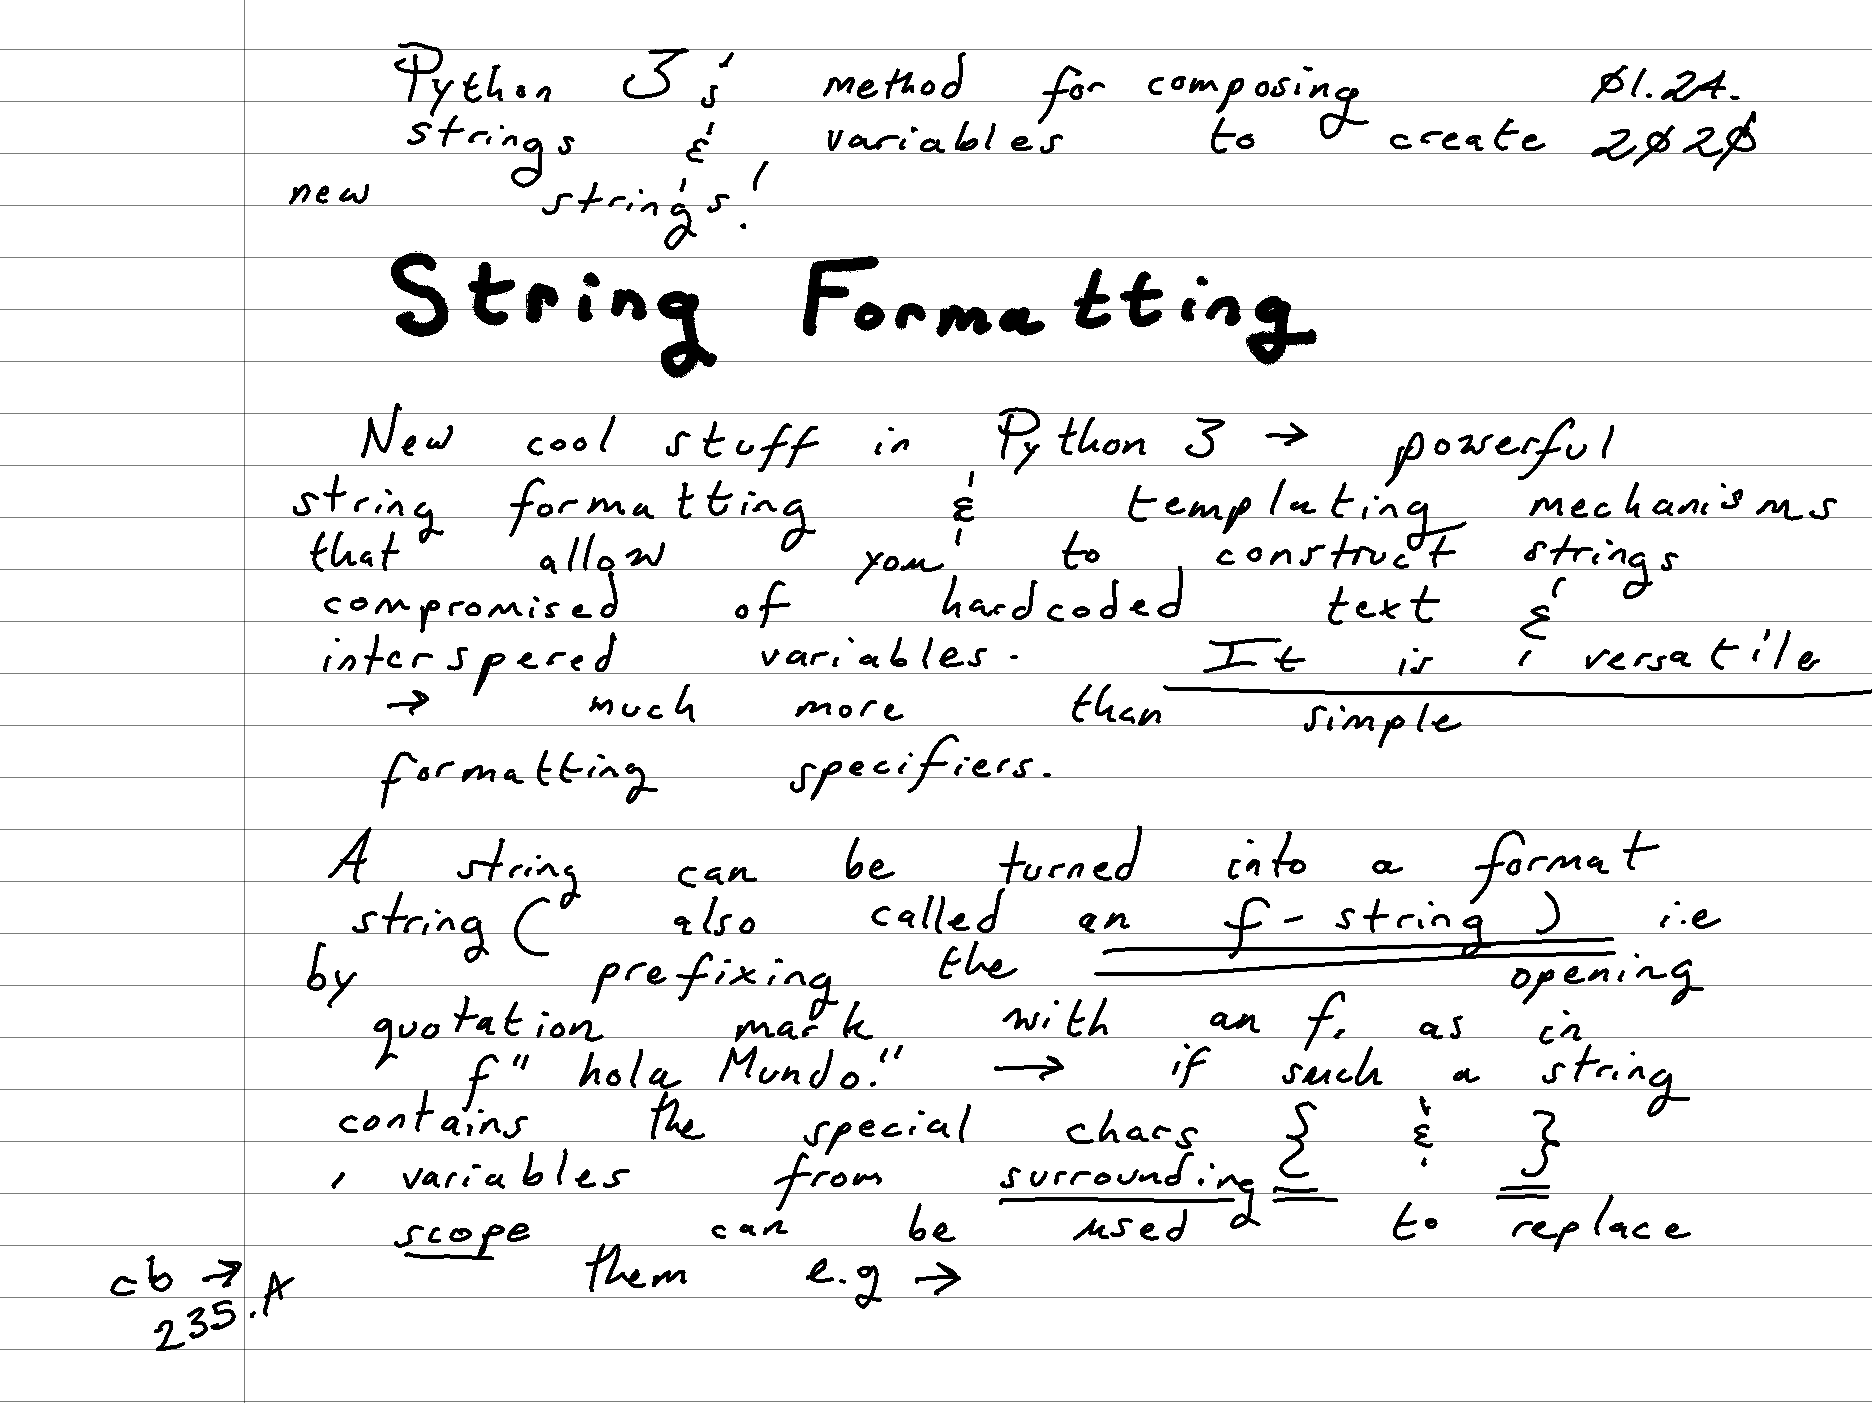 Python 3's method for composing 01.24.
strings & variables to create 2020
new strings!
String Formatting
New cool stuff in Python 3 → powerful
string formatting & templating mechanisms
that allow you to construct strings
compromised of hardcoded text &
interspered variables. It is versatile
→ much more than simple
formatting specifiers.
A string can be turned into a format
string (also called an f-string) i.e
by prefixing the opening
quotation mark with an f, as in
f"hola Mundo." → if such a string
contains the special chars { & }
, variables from surrounding
scope can be used to replace
them e.g →
cb →
235.A